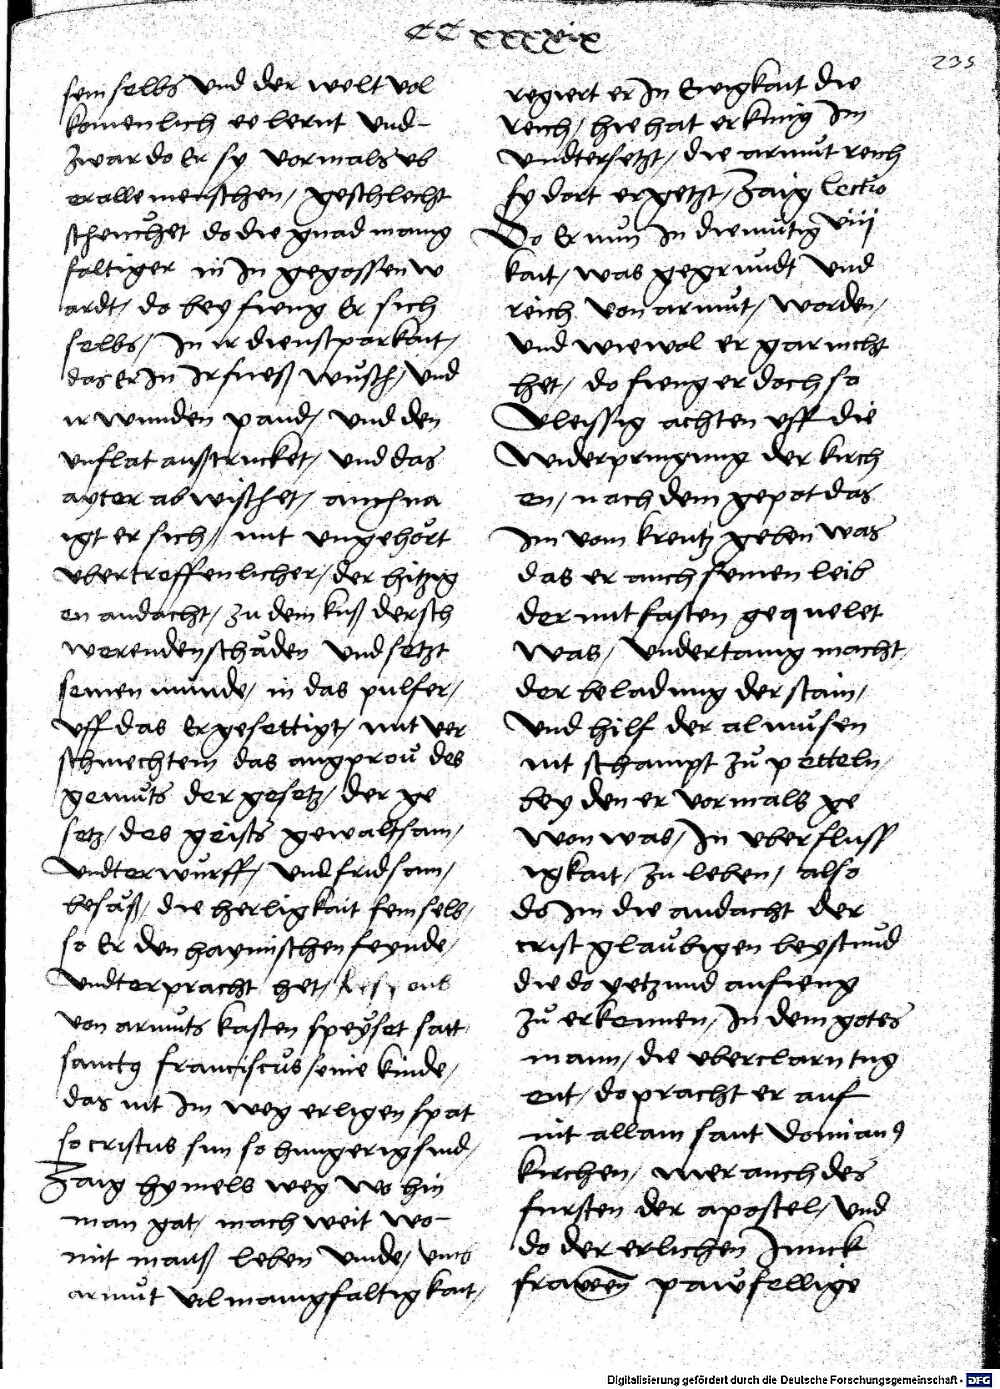 CCxxxxix
235
sein selbs vnd der welt vol
komenlich ee lernt vnd-
zwar do Er sy vormals vb
er alle menschen / geschlecht
scheuchet do die gnad manig
faltiger in In gegossen w
ardt / do bey fieng Er sich
selbs / In ir dienstparkait /
das Er In Ir fueß wusch / vnd
ir wunden pand / vnd den
vnflat außtrucket / vnd das
ayter ab wischet / auch na
igt er sich / mit vngehört
vbertreffenlicher / der hitzig
en andacht / zu dem kuß der sch
werenden schäden vnd setzt
seinen munde / in das pulfer /
vff das Er gesettigt / mit ver
schmechtem das angprou des
gemuts der gesetz / der ge
setz / des geists gewaltsam /
vndterwurff / vnd fridsam /
besäß / die herligkait sein selb /
so Er den haymischen feynde /
vndterpracht het /
von armuts kasten speyset satt
sanctus franciscus seine kinde /
das nit Im weg erligen spat
so cristus sun so hungerig sind /
Zaig hymels weg wo hin
man gat / mach weit wo-
mit manß leben vinde / vnns
armut vil manigfaltigkait /
regiert er In Ewigkait die
reich / hie hat er kunig Im
vndtersetzt / die armut reich
sy dort ergetzt / Zaig lectio
Do Er nun In diemutig viij
kait / was gegrundt vnd
reich von armut / worden /
vnd wiewol er gar nicht
het / do fieng er doch so
vleissig achten vff die
widerpringung der kirch
en / nach dem gepot das
Im vom kreutz geben was
das er auch seinen leib
der mit fasten gequelet
was / vndertanig macht /
der beladung der stain /
vnd hilf der almusen
nit schampt zu petteln /
bey den er vormals ge
won was / In vberfluss
igkait / zu leben / also
do Im die andacht der
crist glaubigen beystund
die do yetzund anfieng
zu erkennen / In dem gotes
mann / die vberclarn tug
ent / do pracht er auf
nit allain sant domians
kirchen / mer auch des
fursten der apostel / vnd
do der erlichen Junck
frauen pawfellige
Digitalisierung gefördert durch die Deutsche Forschungsgemeinschaft - DFG